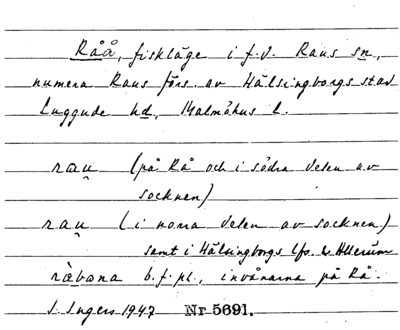 Råå, fiskläge i f.d. Raus sn,
numera Raus förs. av Hälsingborgs stad
Luggude hd, Malmöhus l.
rau̯ (på Rå och i södra delen av
socknen)
rau̯ (i norra delen av socknen)
samt i Hälsingborgs lfs. & Allerum
ràbona b.f.pl., invånarna på Rå.
I. Ingers 1947 Nr 5691.